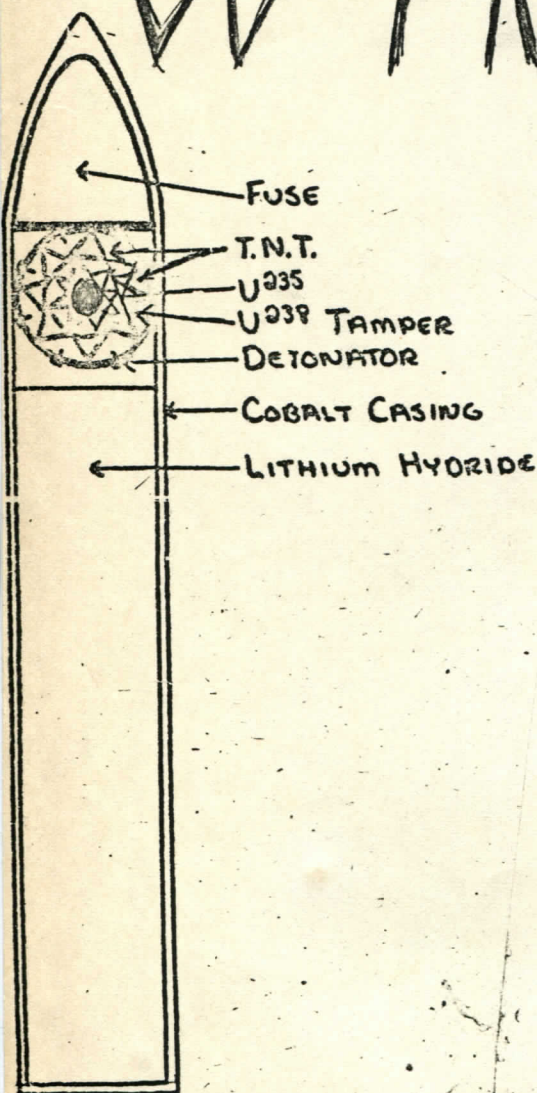 FUSE
T.N.T.
U²³⁵
U²³⁸ TAMPER
DETONATOR
COBALT CASING
LITHIUM HYDRIDE